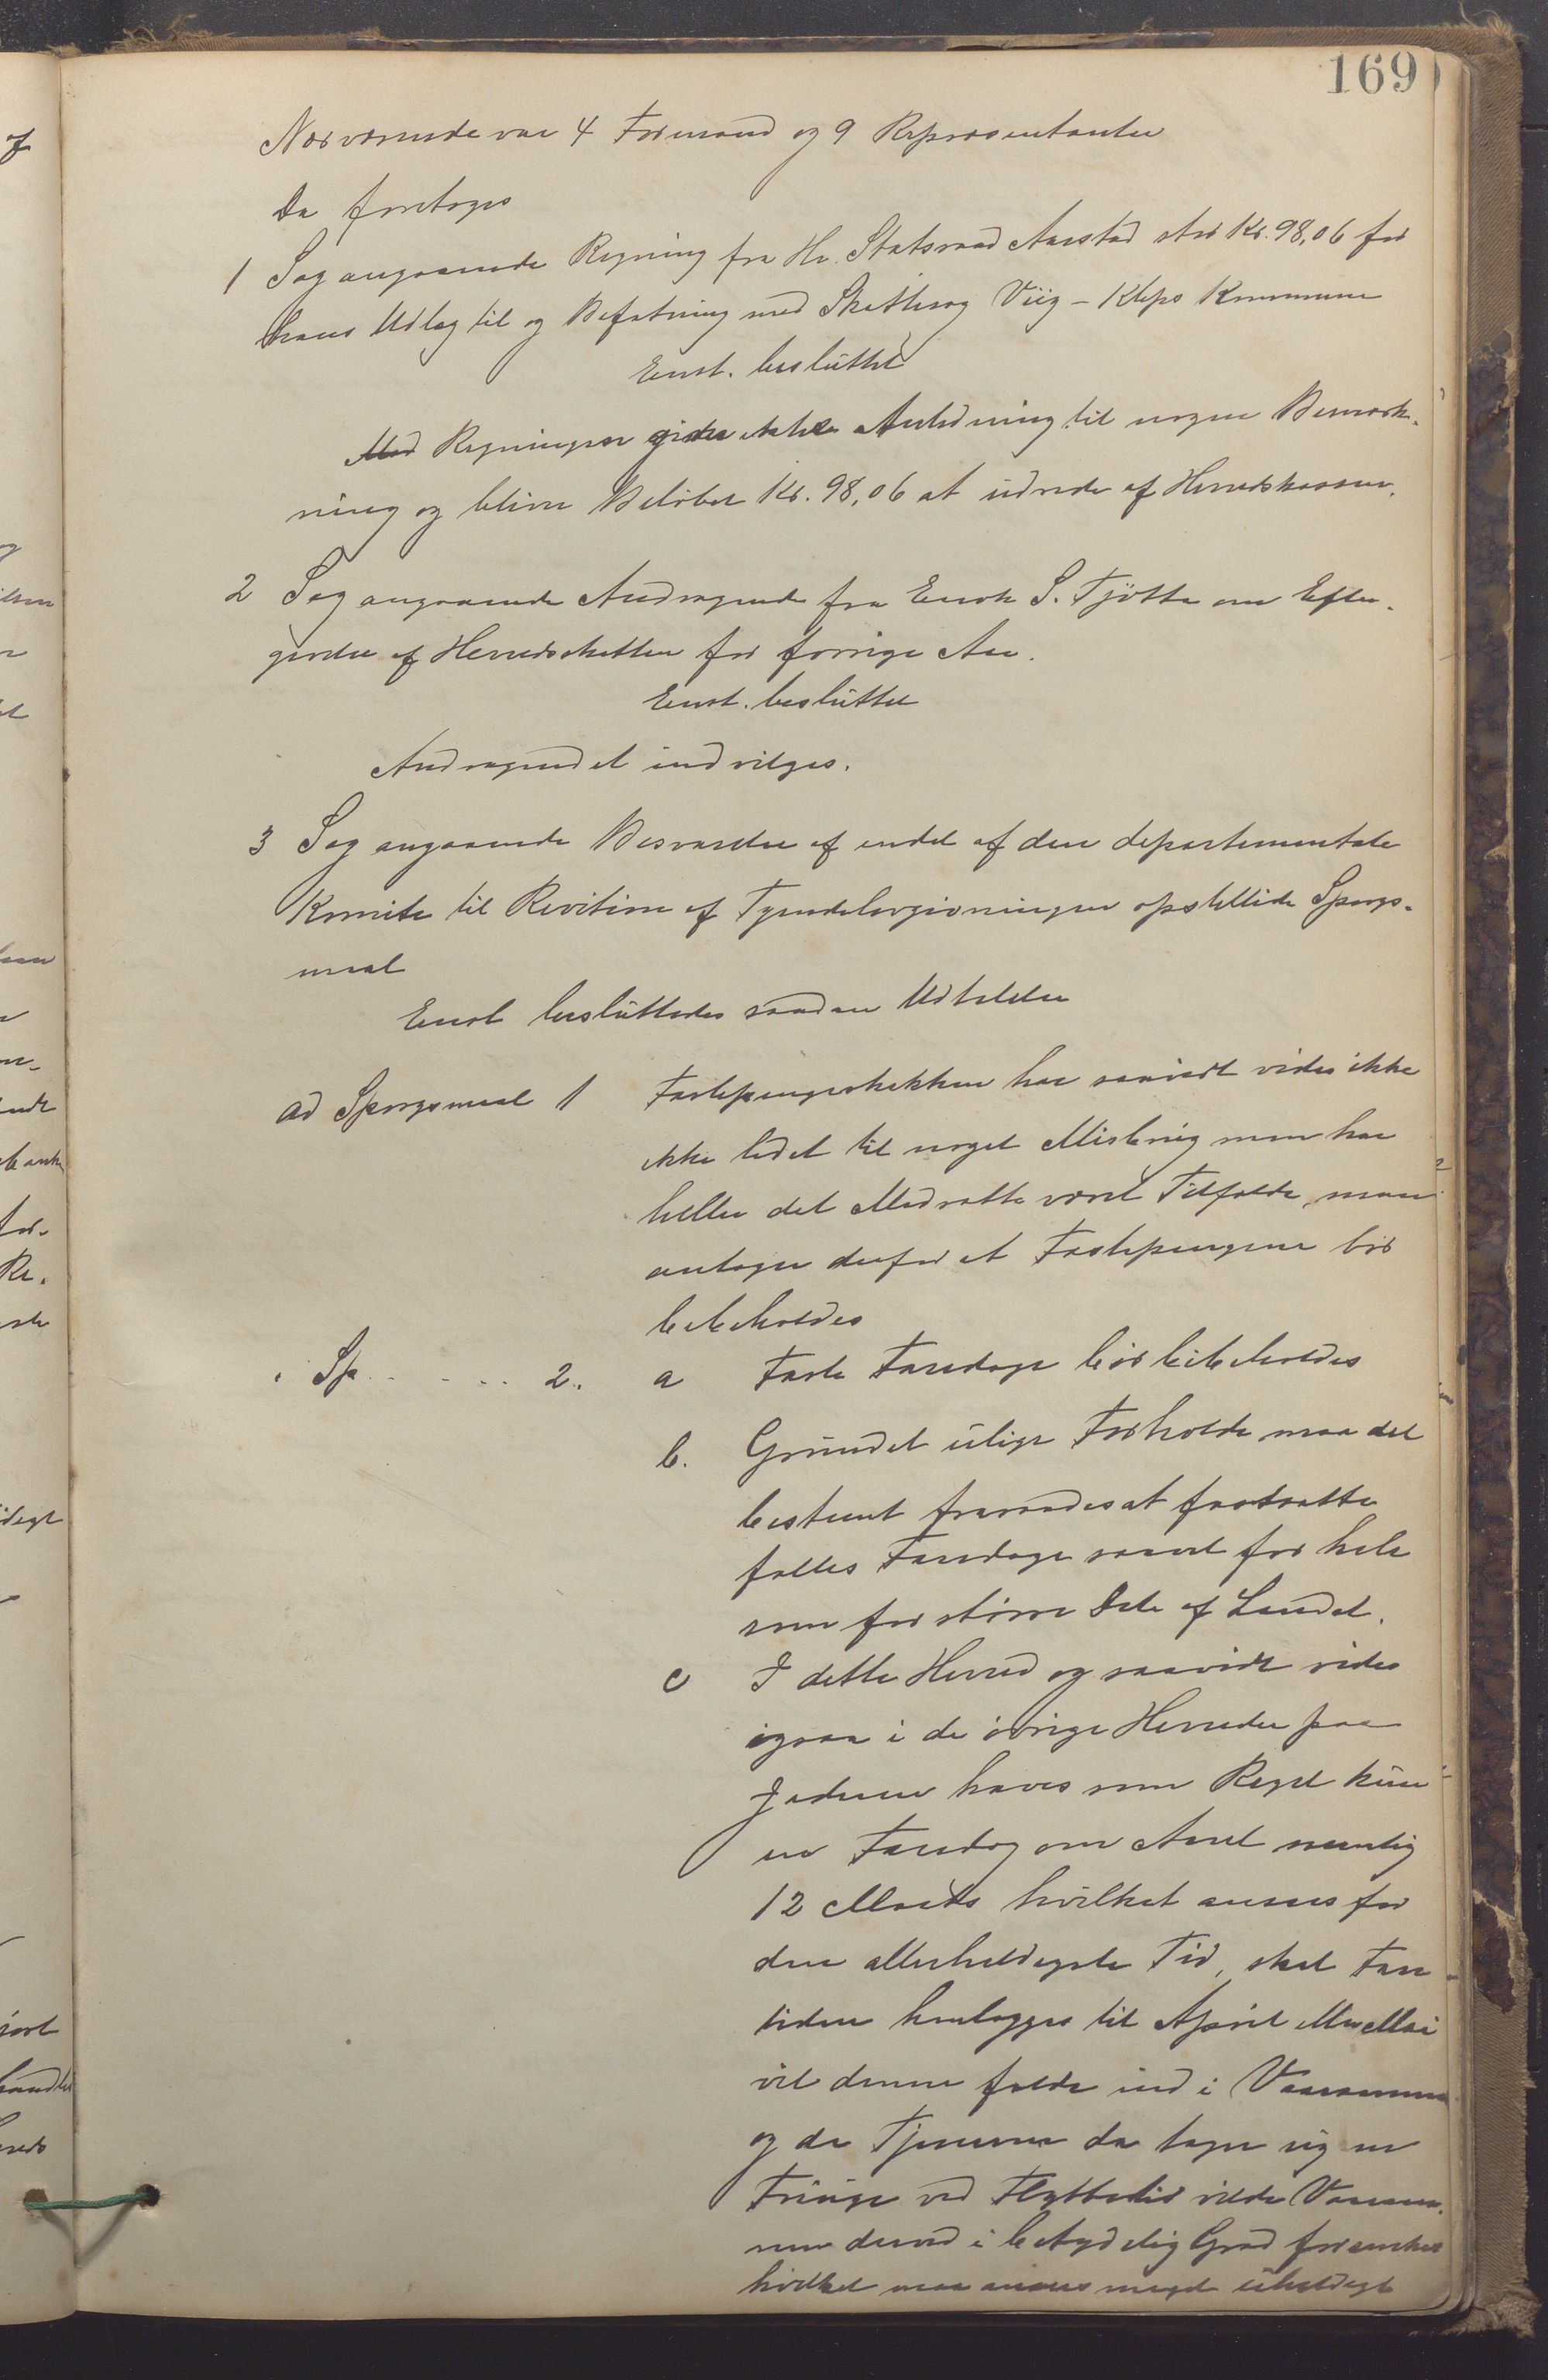 169
Nærværende var 4 Formænd og 9 Repræsentanter
Da foretoges
1 Sag angaaende Regning fra Hr. Statsraad Aarstad stor Kr. 98,06 for
hans Udlæg til og Befatning med Skattesag Viig - Kleps Kommune
Enst. besluttet
Med Regningen gives ikke Anledning til nogen Bemærk-
ning og bliver Beløbet Kr. 98,06 at udrede af Herredskassen.
2 Sag angaaende Andragende fra Enok S. Tjøtta om Efter-
givelse af Herredsskatten for forrige Aar.
Enst. besluttet
Andragendet indvilges.
3 Sag angaaende Besvarelse af endel af den departementale
Komite til Revition af Tyendelovgivningen opstillede Spørgs-
maal
Enst besluttedes saadan Udtalelse
ad Spørgsmaal 1 Fæstepengeskikken har saavidt vides ikke
ikke ledet til noget Misbrug men har
heller det Modsatte været Tilfælde, man
antager derfor at Fæstepengene bør
bibeholdes
" Sp. . . . . 2. a Faste Faredage bør bibeholdes
b. Grundet ulige Forholde maa det
bestemt fraraades at fastsætte
fælles Faredage saavel for hele
som for større Dele af Landet.
c I dette Herred og saavidt vides
igsaa i de øvrige Herreder paa
Jæderen haves som Regel kun
en Faredag om Aaret nemlig
12 Marts hvilket ansees for
den allerheldigste Tid, skal Fare-
tiden henlægges til April eller Mai
vil denne falde ind i Vaaraannen
og da Tjenerne da tager sig en
Friuge ved Flyttetid vilde Vaaraan-
nen derved i betydelig Grad forsinkes
hvilket maa ansees meget uheldigt